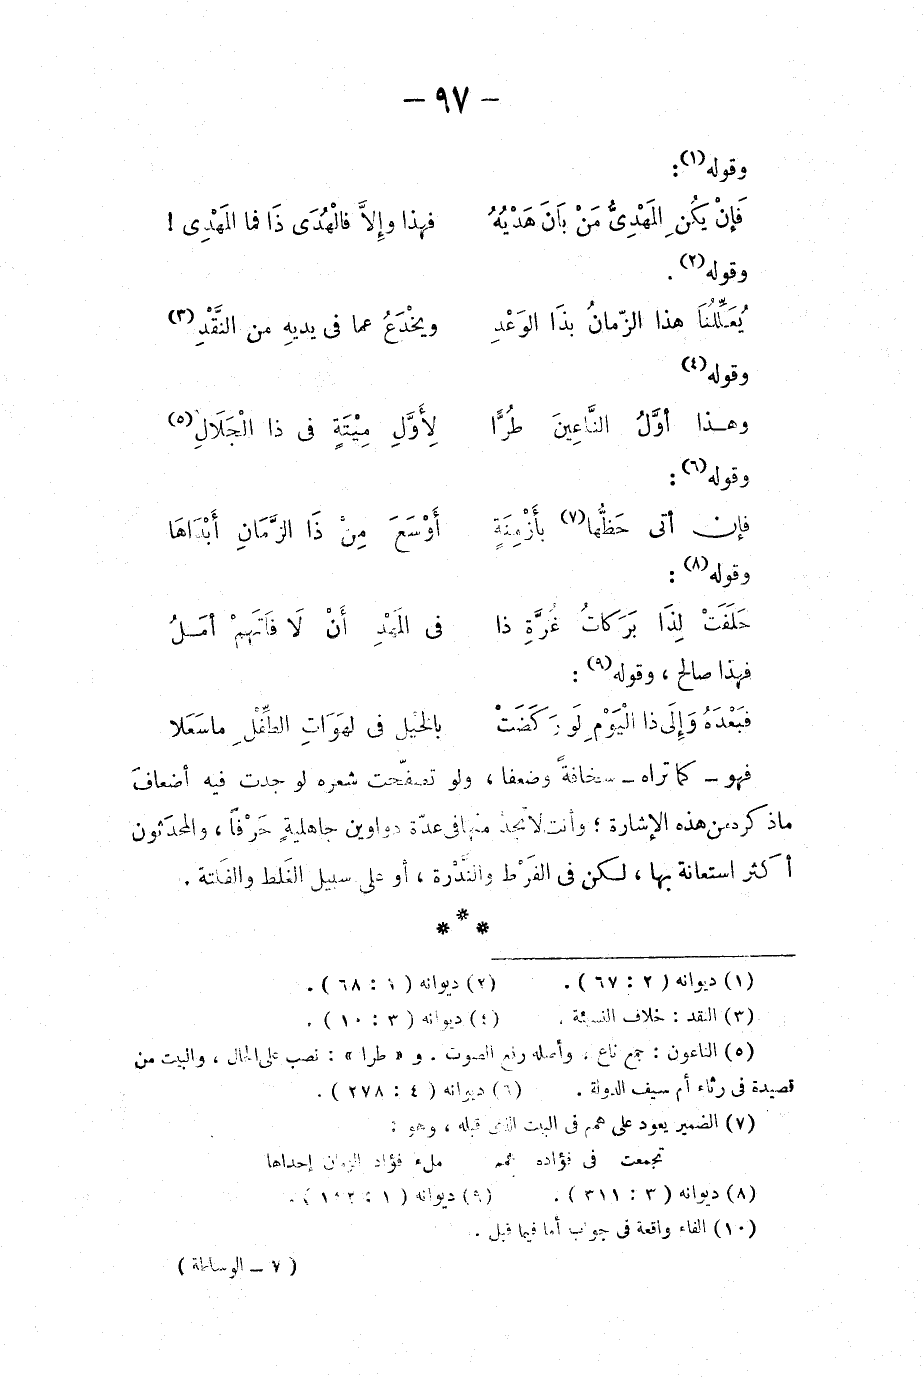 – ٩٧ –
وقوله(١):
فَإِنْ يَكُنِ المَهْدِىُّ مَنْ بَانَ هَدْيُهُ فهذا وإِلاَّ فالْهُدَى ذَا فما المَهْدِى !
وقوله(٢) .
يُعَلِّلُنَا هذا الزّمانُ بذَا الوَعْدِ ويَخْدَعُ عما فى يديهِ من النَّقْدِ(٣)
وقوله(٤)
وهـذا أوّلُ النَّاعِينَ طُرًّا لِأَوَّلِ مِيْتَةٍ فى ذا الْجَلَالِ(٥)
وقوله(٦) :
فإن أتى حَظُّها(٧) بأَزْمِنَةٍ أَوْسَعَ مِنْ ذَا الزَّمَانِ أَبْدَاهَا
وقوله(٨) :
حَلَفَتْ لِذَا بَرَكَاتُ غُرَّةِ ذا فى المَهْدِ أَنْ لَا فَاتَهِمْ أمَـلُ
فهذا صالح ، وقوله(٩) :
فَبَعْدَهُ وَإِلَى ذا الْيَوْمِ لَو رَكَضَتْ بالخَيْلِ فى لهَوَاتِ الطِّفْلِ ماسَعَلا
فهو – كما تراه – سخافةً وضعفا ، ولو تصفّحت شعره لو جدت فيه أضعافَ
ماذكرده من هذه الإشارة ؛ وأنت لا تجدُ منها فى عدّة دواوين جاهليةٍ حَرْفًا ، والمحدَثون
أكثر استعانة بها ، لـكن فى الفَرْط والنُّدْرة ، أو على سبيل الغَلط والفَلتة .
***
(١) ديوانه ( ٢ : ٦٧ ) . (٢) ديوانه ( ٢ : ٦٨ ) .
(٣) النقد : خلاف النسيئة . (٤) ديوانه ( ٣ : ١٠ ) .
(٥) الناعون : جمع ناع ، وأصله رفع الصوت . و « طرا » : نصب على الحال ، والبيت من
قصيدة فى رثاء أم سيف الدولة . (٦) ديوانه ( ٤ : ٢٧٨ ) .
(٧) الضمير يعود على همم فى البيت الذى قبله ، وهو :
تجمعت فى فؤاده همم ملء فؤاد الزمان إحداها
(٨) ديوانه ( ٣ : ٣١١ ) . (٩) ديوانه ( ١ :
(١٠) الفاء واقعة فى جواب أما فيما قبل .
( ٧ – الوساطة )